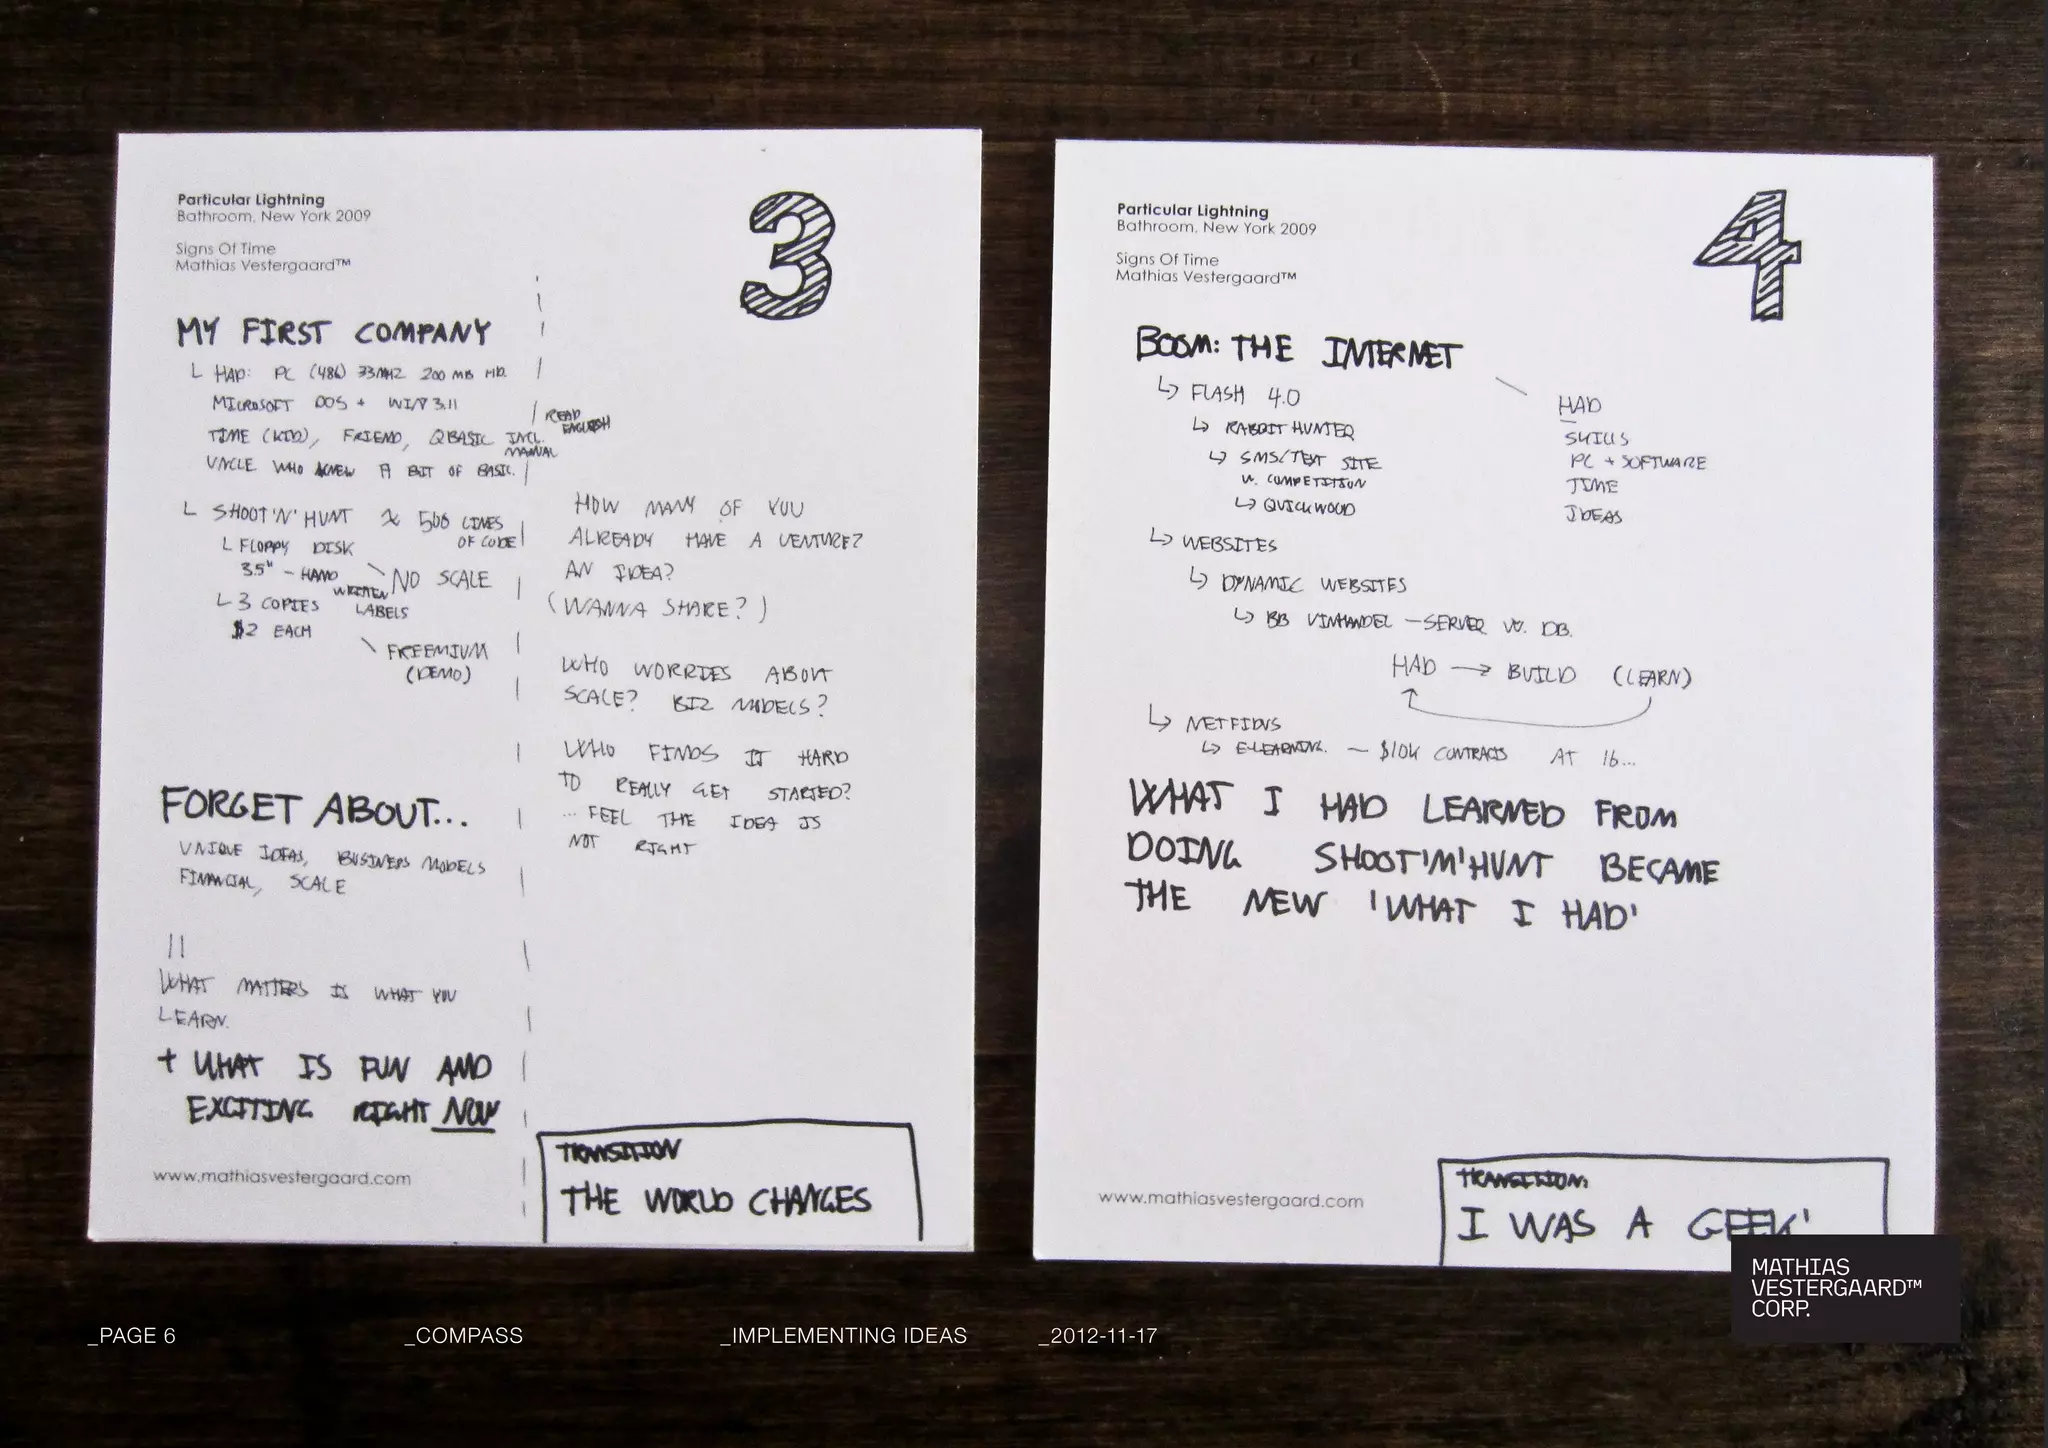 Particular Lightning
Bathroom, New York 2009
Signs Of Time
Mathias Vestergaard™
3
MY FIRST COMPANY
HAD: PC (486) 33MHZ 200 MB HD.
MICROSOFT DOS + WIN 3.11
TIME (KID), FRIEND, QBASIC INCL. MANUAL
READ ENGLISH
UNCLE WHO KNEW A BIT OF BASIC.
SHOOT'N'HUNT ≈ 500 LINES OF CODE
FLOPPY DISK
3.5" - HAND WRITTEN LABELS
NO SCALE
3 COPIES
$2 EACH
FREEMIUM
(DEMO)
FORGET ABOUT...
UNIQUE IDEAS, BUSINESS MODELS
FINANCIAL, SCALE
WHAT MATTERS IS WHAT YOU
LEARN.
+ WHAT IS FUN AND
EXCITING RIGHT NOW
www.mathiasvestergaard.com
HOW MANY OF YOU
ALREADY HAVE A VENTURE?
AN IDEA?
(WANNA SHARE?)
WHO WORRIES ABOUT
SCALE? BIZ MODELS?
WHO FINDS IT HARD
TO REALLY GET STARTED?
... FEEL THE IDEA IS
NOT RIGHT
TRANSITION
THE WORLD CHANGES
Particular Lightning
Bathroom, New York 2009
Signs Of Time
Mathias Vestergaard™
4
BOOM: THE INTERNET
FLASH 4.0
RABBIT HUNTER
SMS/TEXT SITE
W. COMPETITION
QUICKWOOD
HAD
SKILLS
PC + SOFTWARE
TIME
IDEAS
WEBSITES
DYNAMIC WEBSITES
BB VINHANDEL - SERVER W. DB.
HAD → BUILD (LEARN)
NETFIDUS
E-LEARNING. - $10K CONTRACTS AT 16...
WHAT I HAD LEARNED FROM
DOING SHOOT'N'HUNT BECAME
THE NEW 'WHAT I HAD'
www.mathiasvestergaard.com
TRANSITION:
I WAS A GEEK'
MATHIAS
VESTERGAARD™
CORP.
_PAGE 6 _COMPASS _IMPLEMENTING IDEAS _2012-11-17